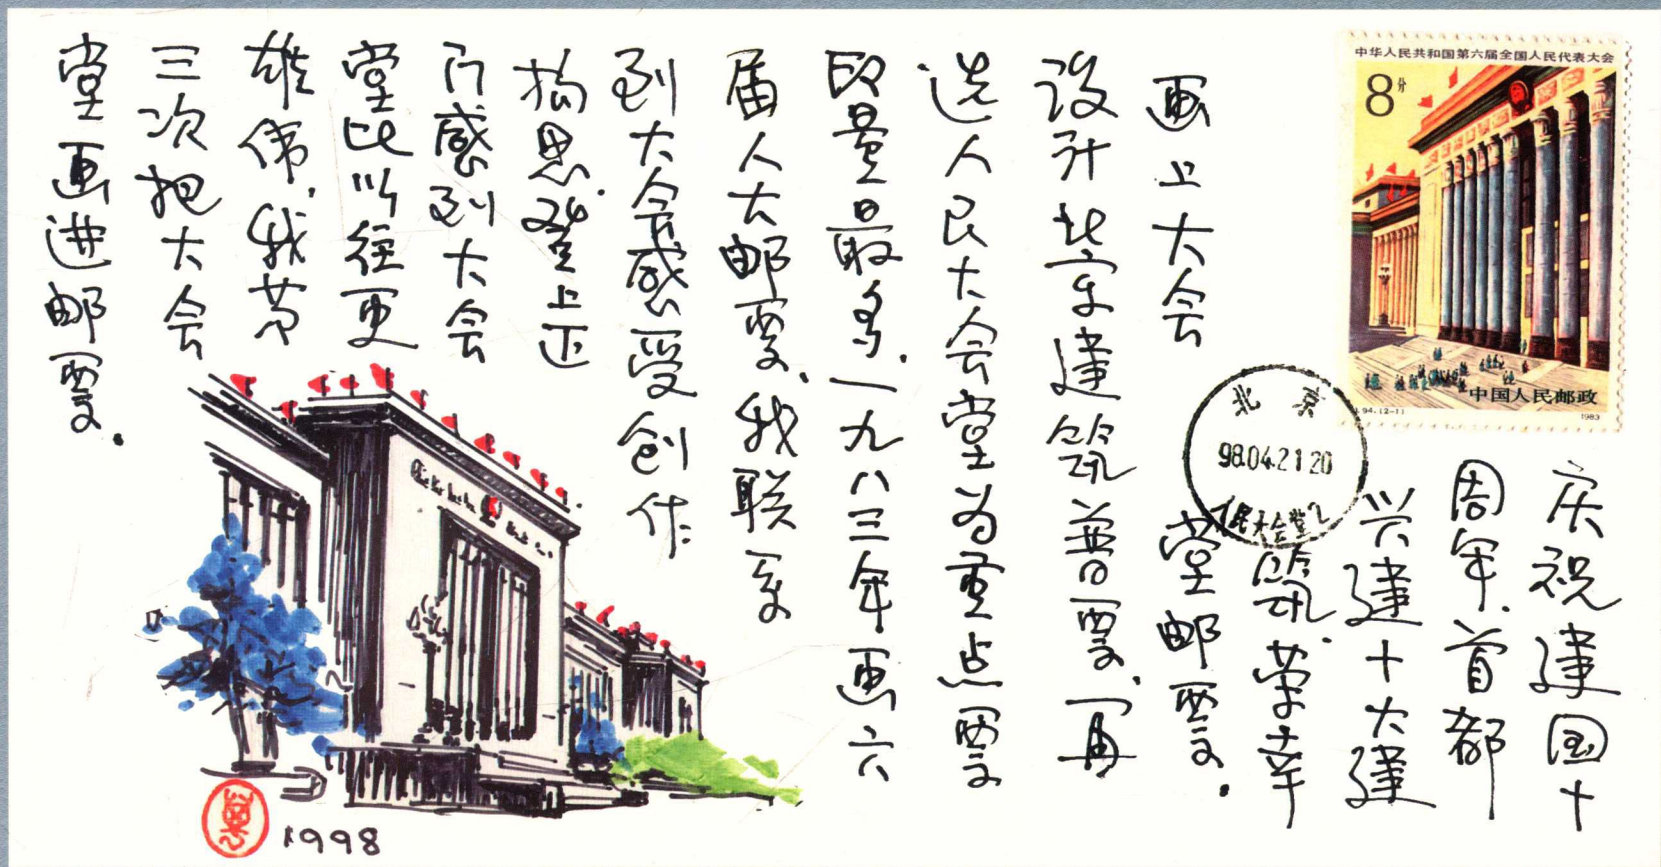 中华人民共和国第六届全国人民代表大会
8分
中国人民邮政
J.94.(2-1) 1983
北京
98.04.21.20
人民大会堂2
庆祝建国十
周年,首都
兴建十大建
筑,荣幸
画上大会堂邮票.
设计北京建筑普票,再
选人民大会堂为重点票
印量最多.一九八三年画六
届人大邮票,我联系
到大会感受创作
构思,登上正
门感到大会
堂比以往更
雄伟,我第
三次把大会
堂画进邮票.
1998